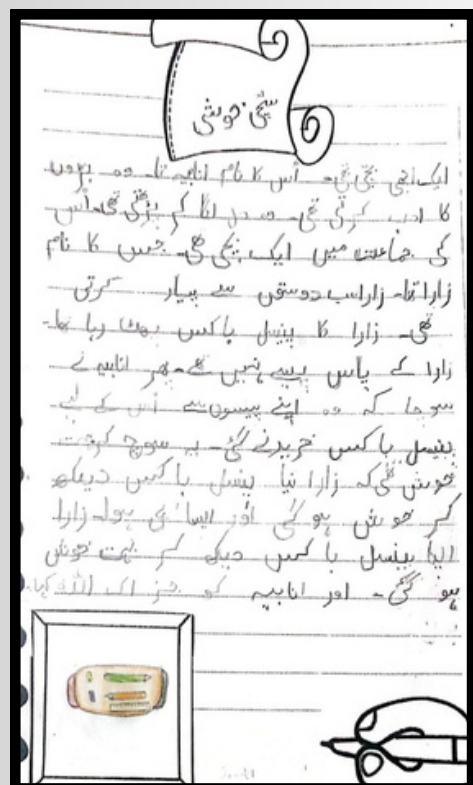 سچی خوشی
ایک اچھی بچی تھی۔ اُس کا نام انابیہ تھا۔ وہ بڑوں
کا ادب کرتی تھی۔ وہ ہر اتا کم پڑھتی تھی۔ اُس
کی جماعت میں ایک بچی تھی۔ جس کا نام
زارا تھا۔ زارا سب دوستوں سے پیار کرتی
تھی۔ زارا کا پینسل باکس پھٹا رہا تھا۔
زارا کے پاس پیسے نہیں تھے۔ پھر انابیہ نے
سوچا کہ وہ اپنے پیسوں سے اُس کے لیے
پینسل باکس خریدنے گئی۔ یہ سوچ کر بہت
خوش تھی کہ زارا نیا پینسل باکس دیکھ
کر خوش ہو گی اور ایسا ہی ہوا۔ زارا
نیا پینسل باکس دیکھ کر بہت خوش
ہو گئی۔ اور انابیہ کو جزاک اللہ کہا۔